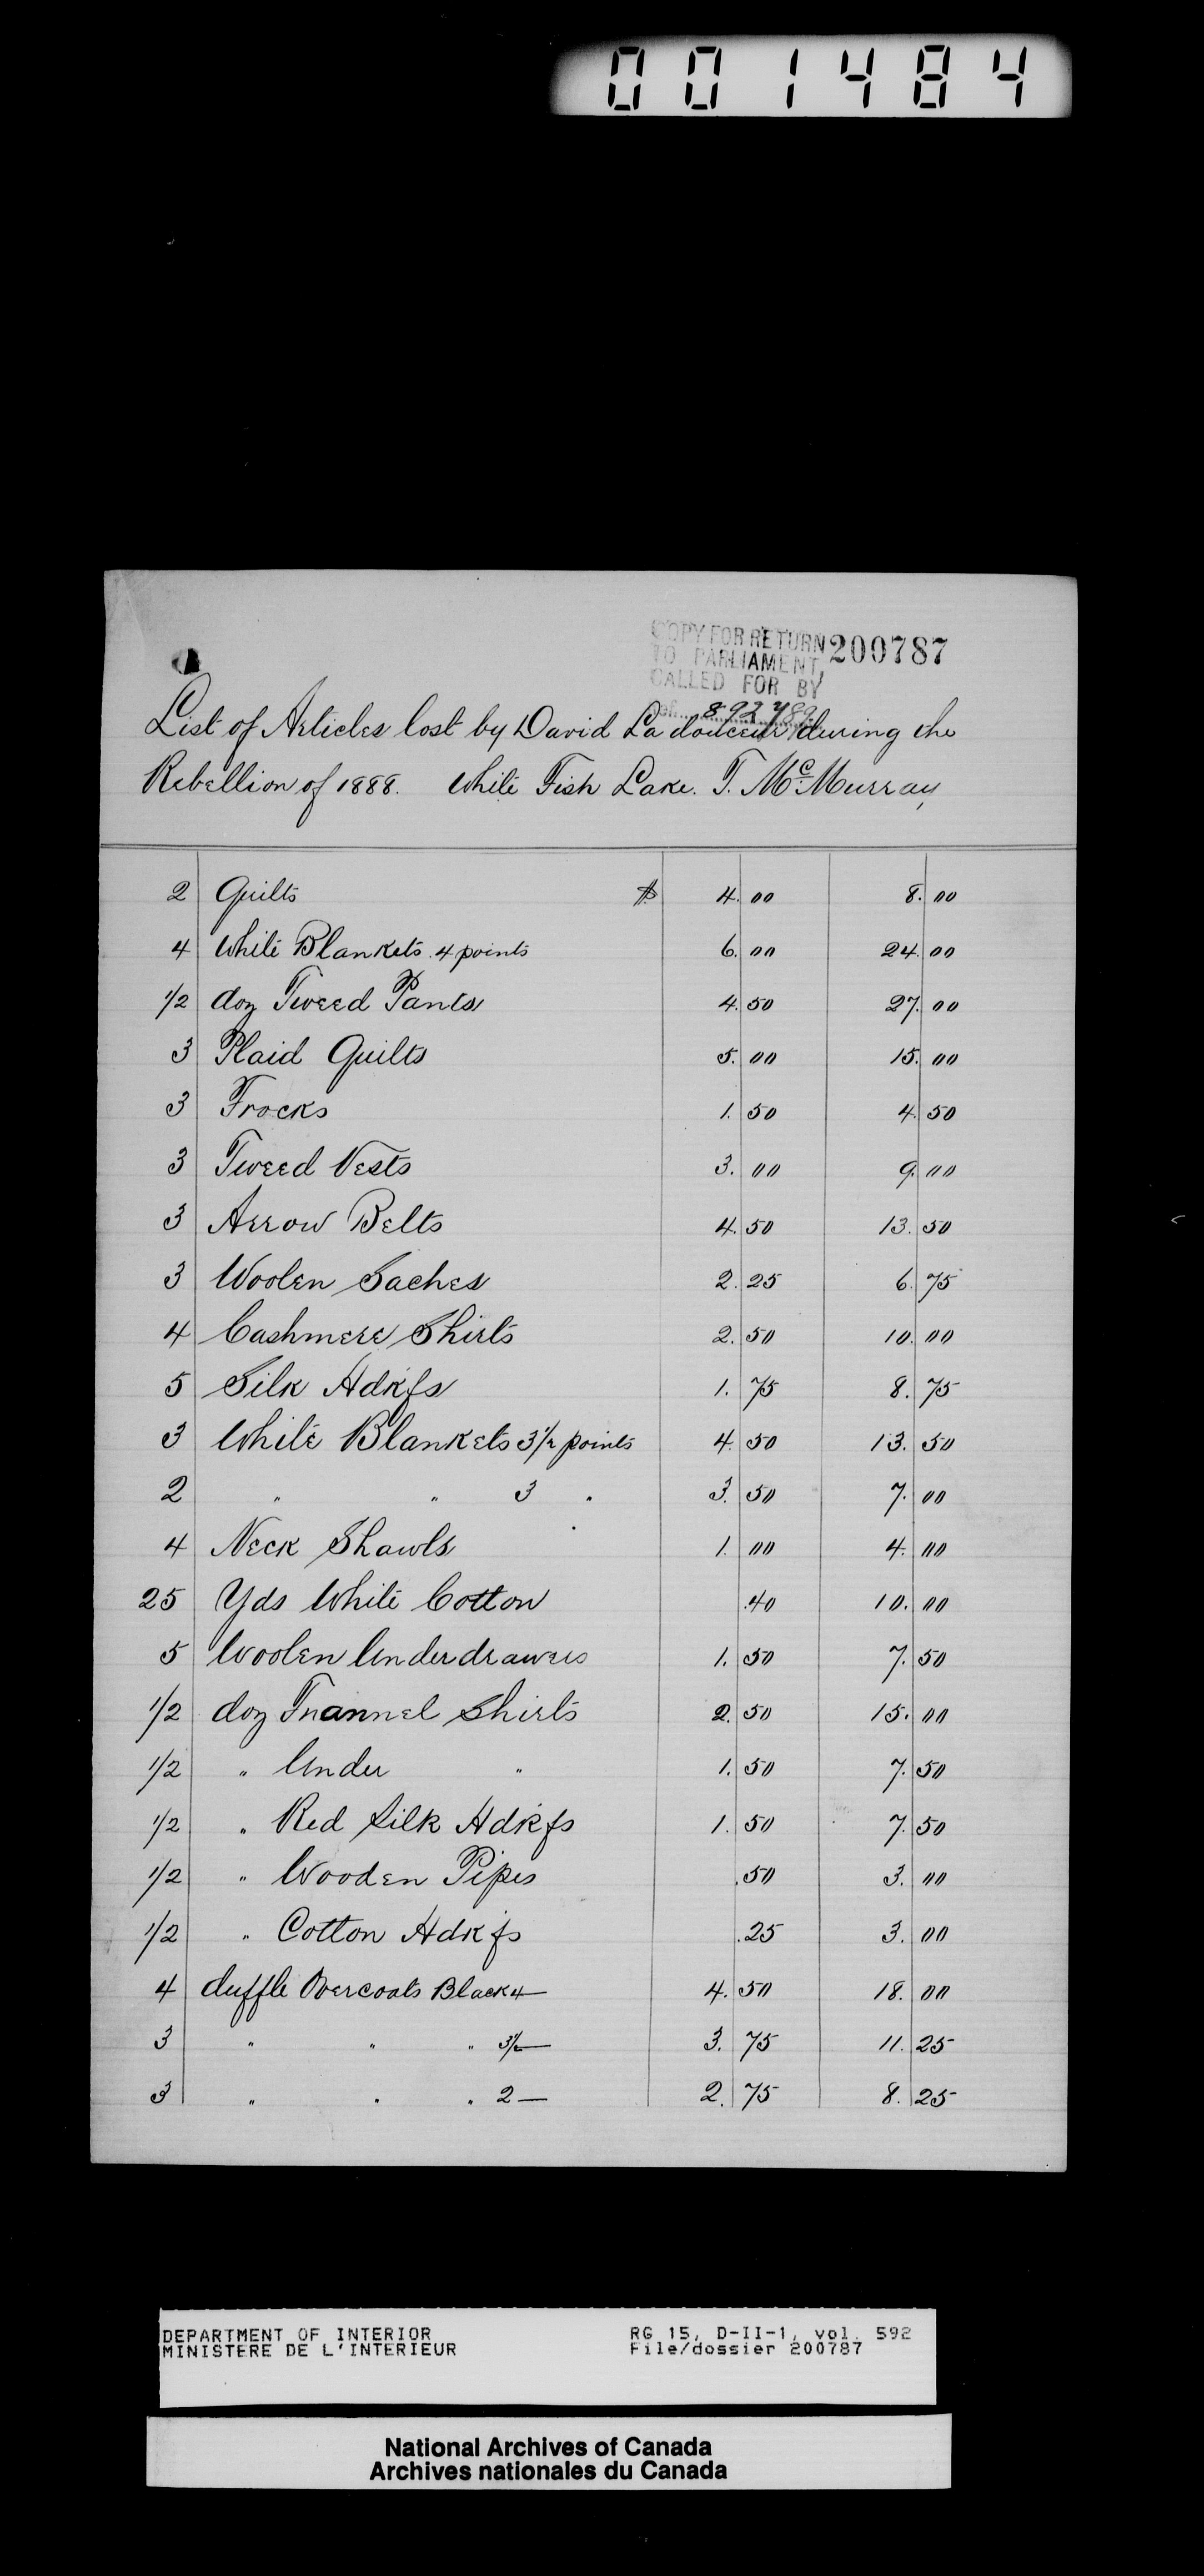 001484
COPY FOR RETURN
TO PARLIAMENT,
CALLED FOR BY
200787
List of Articles lost by David La douceur during the
Rebellion of 1888. White Fish Lake. T. McMurray
2 Quilts $ 4.00 8.00
4 White Blankets 4 points 6.00 24.00
1/2 doz Tweed Pants 4.50 27.00
3 Plaid Quilts 5.00 15.00
3 Frocks 1.50 4.50
3 Tweed Vests 3.00 9.00
3 Arrow Belts 4.50 13.50
3 Woolen Saches 2.25 6.75
4 Cashmere Shirts 2.50 10.00
5 Silk Hdkfs 1.75 8.75
3 White Blankets 3 1/2 points 4.50 13.50
2 " " 3 " 3.50 7.00
4 Neck Shawls 1.00 4.00
25 Yds White Cotton .40 10.00
5 Woolen Underdrawers 1.50 7.50
1/2 doz Fnannel Shirts 2.50 15.00
1/2 " Under " 1.50 7.50
1/2 " Red Silk Hdkfs 1.50 7.50
1/2 " Wooden Pipes .50 3.00
1/2 " Cotton Hdkfs .25 3.00
4 duffle Overcoats Black 4— 4.50 18.00
3 " " " 3 1/2— 3.75 11.25
3 " " " 2— 2.75 8.25
DEPARTMENT OF INTERIOR
MINISTERE DE L'INTERIEUR
RG 15, D-II-1, vol. 592
File/dossier 200787
National Archives of Canada
Archives nationales du Canada